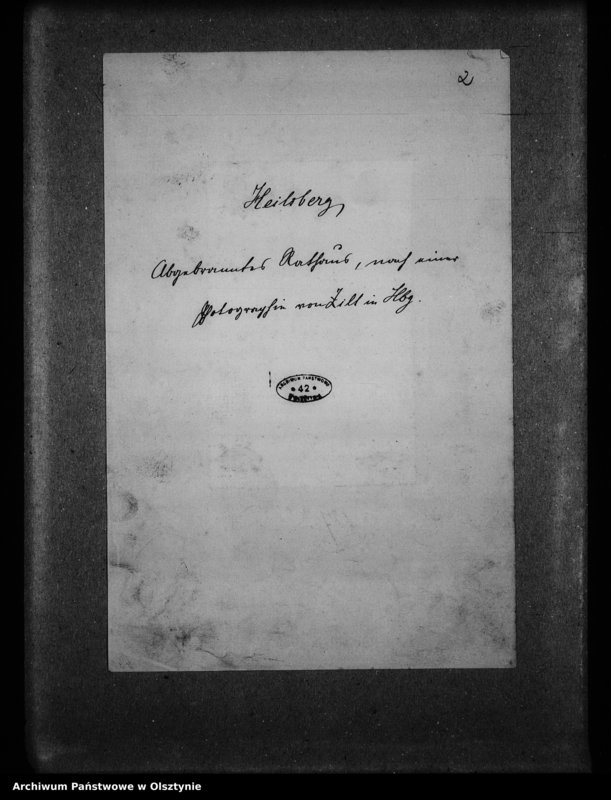 2
Heilsberg,
Abgebranntes Rathaus, nach einer
Photographie von Zill in Hbg.
ARCHIWUM PAŃSTWOWE
* 42 *
Archiwum Państwowe w Olsztynie